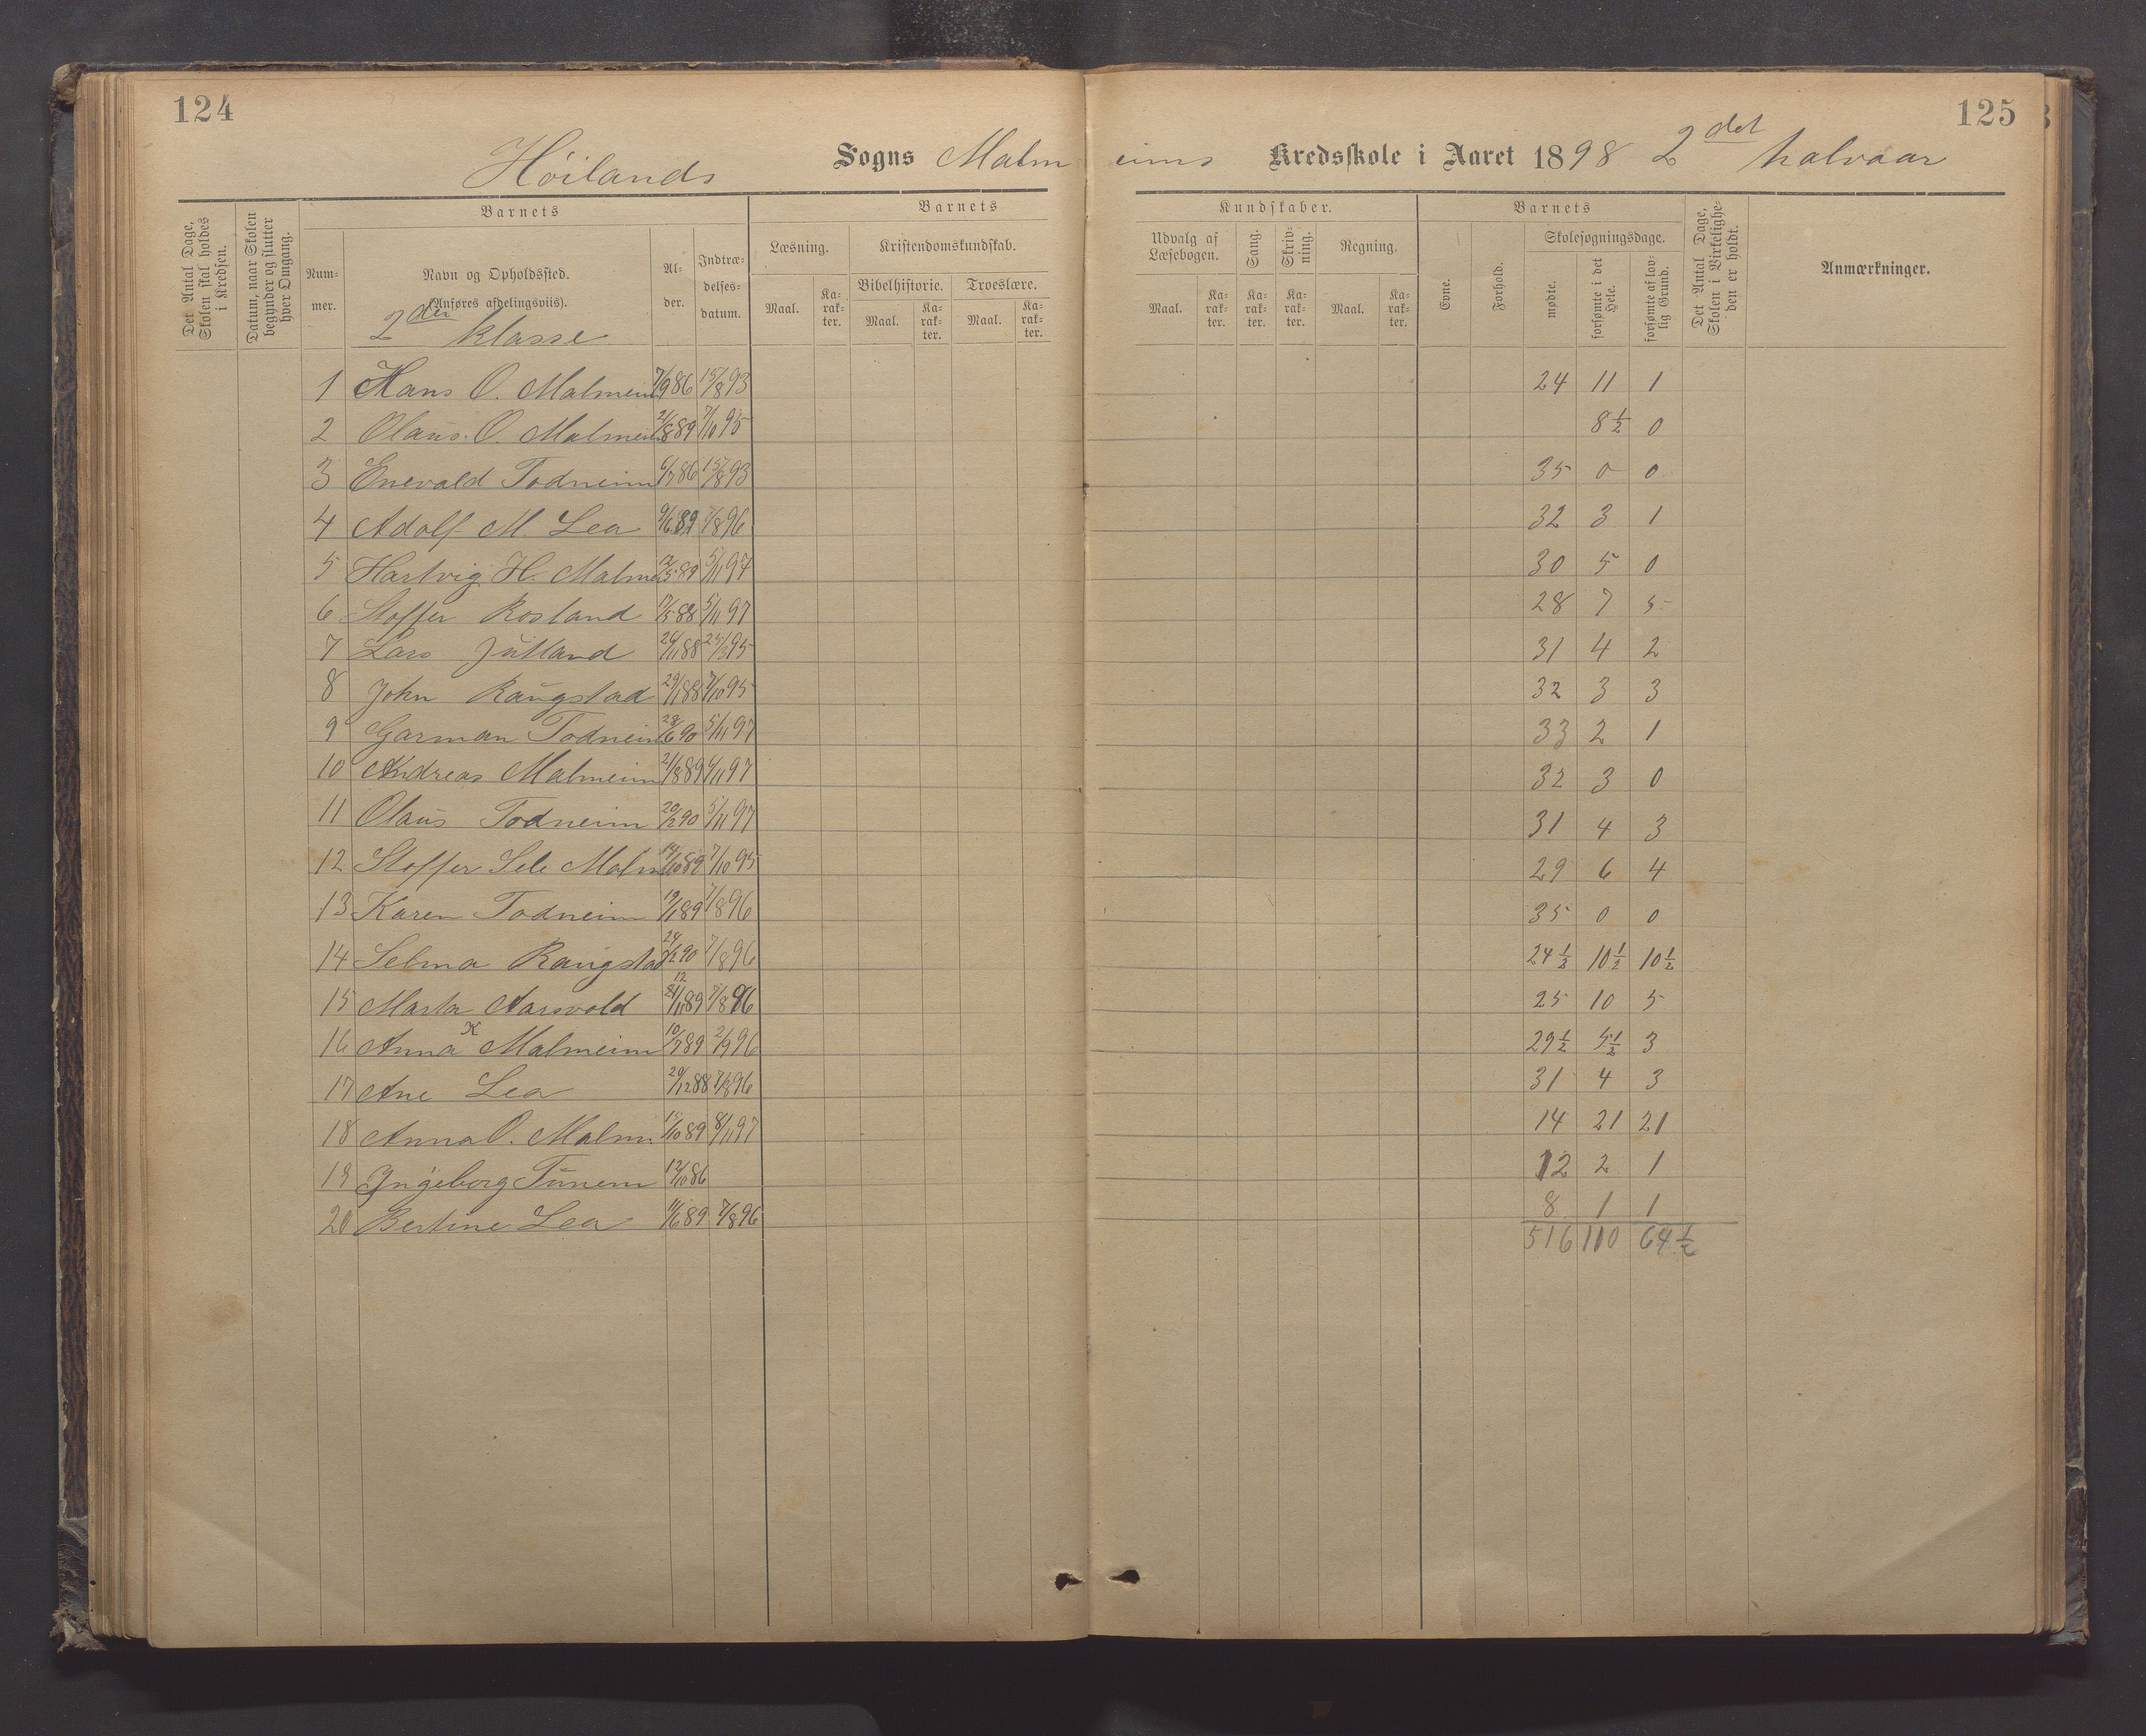 124
125
Høilands Sogns Malmeims Kredsskole i Aaret 1898 2det halvaar
Det Antal Dage, Skolen skal holdes i Kredsen.
Datum, naar Skolen begynder og slutter hver Omgang.
Barnets
Nummer.
Navn og Opholdssted.
(Anføres afdelingsviis).
Alder.
Indtrædelsesdatum.
Barnets
Læsning.
Maal.
Karakter.
Kristendomskundskab.
Bibelhistorie.
Maal.
Karakter.
Troeslære.
Maal.
Karakter.
Kundskaber.
Udvalg af Læsebogen.
Maal.
Karakter.
Sang.
Karakter.
Skrivning.
Karakter.
Regning.
Maal.
Karakter.
Barnets
Evne.
Forhold.
Skolesøgningsdage.
mødte.
forsømte i det Hele.
forsømte af lovlig Grund.
Det Antal Dage, Skolen i Virkeligheden er holdt.
Anmærkninger.
2den klasse
1 Hans O. Malmeim 7/9 86 15/8 93 24 11 1
2 Olaus O. Malmeim 21/8 89 7/10 95 8½ 0
3 Enevald Todneim 6/7 86 15/8 93 35 0 0
4 Adolf M. Lea 9/6 89 7/8 96 32 3 1
5 Hartvig H. Malme 12/5 89 5/11 97 30 5 0
6 Stoffer Rosland 17/5 88 5/11 97 28 7 5
7 Lars Jutland 26/11 88 25/3 95 31 4 2
8 John Raugstad 29/1 88 7/10 95 32 3 3
9 Garman Todneim 28/6 90 5/11 97 33 2 1
10 Andreas Malmeim 21/8 89 4/11 97 32 3 0
11 Olaus Todneim 20/2 90 5/11 97 31 4 3
12 Stoffer Sele Malm 14/10 89 7/10 95 29 6 4
13 Karen Todneim 19/1 89 7/8 96 35 0 0
14 Selma Raugstad 24/2 90 7/8 96 24½ 10½ 10½
15 Marta Aarsvold 12 /11 89 7/8 96 25 10 5
16 Anna K Malmeim 10/7 89 2/9 96 29½ 5½ 3
17 Ane Lea 20/12 88 7/8 96 31 4 3
18 Anna O. Malm 15/10 89 8/11 97 14 21 21
19 Ingeborg Tunem 12/10 86 12 2 1
20 Bertine Lea 11/6 89 7/8 96 8 1 1
516 110 64½